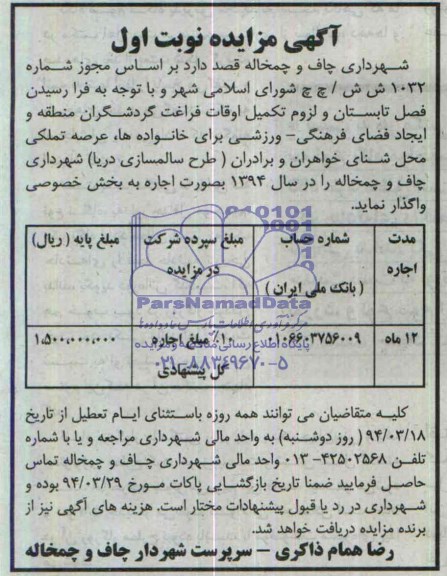 آگهی مزایده نوبت اول
شهرداری چاف و چمخاله قصد دارد بر اساس مجوز شماره
۱۰۳۲ ش ش / چ چ شورای اسلامی شهر و با توجه به فرا رسیدن
فصل تابستان و لزوم تکمیل اوقات فراغت گردشگران منطقه و
ایجاد فضای فرهنگی- ورزشی برای خانواده ها، عرصه تملکی
محل شنای خواهران و برادران ( طرح سالمسازی دریا) شهرداری
چاف و چمخاله را در سال ۱۳۹۴ بصورت اجاره به بخش خصوصی
واگذار نماید.
مدت اجاره
شماره حساب ( بانک ملی ایران )
مبلغ سپرده شرکت در مزایده
مبلغ پایه ( ریال)
۱۲ ماه
۰۱۰۶۶۰۳۷۵۶۰۰۹
۱۰٪ مبلغ اجاره کل پیشنهادی
۱,۵۰۰,۰۰۰,۰۰۰
ParsNamadData
پایگاه اطلاع رسانی مناقصه و مزایده
۰۲۱-۸۸۳۴۹۶۷۰-۵
کلیه متقاضیان می توانند همه روزه باستثنای ایام تعطیل از تاریخ
۹۴/۰۳/۱۸ ( روز دوشنبه) به واحد مالی شهرداری مراجعه و یا با شماره
تلفن ۴۲۵۰۲۵۶۸- ۰۱۳ واحد مالی شهرداری چاف و چمخاله تماس
حاصل فرمایید ضمنا تاریخ بازگشایی پاکات مورخ ۹۴/۰۳/۲۹ بوده و
شهرداری در رد یا قبول پیشنهادات مختار است. هزینه های آگهی نیز از
برنده مزایده دریافت خواهد شد.
رضا همام ذاکری – سرپرست شهردار چاف و چمخاله